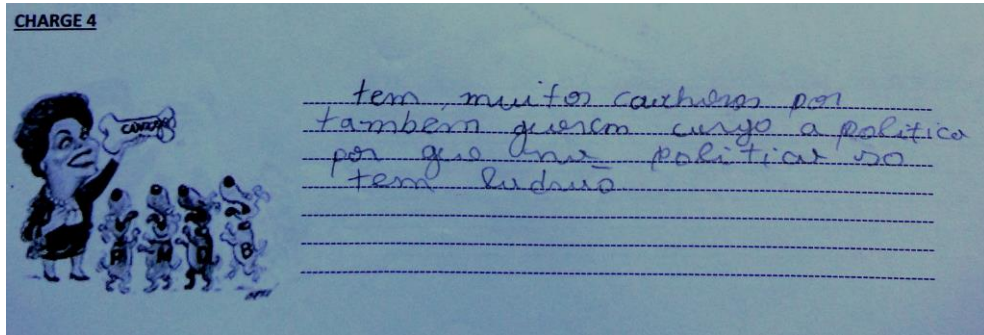 CHARGE 4
CARGOS
P M D B
tem muitos cachoros por
tambem querem cargo a politica
por que na politica so
tem ladrão